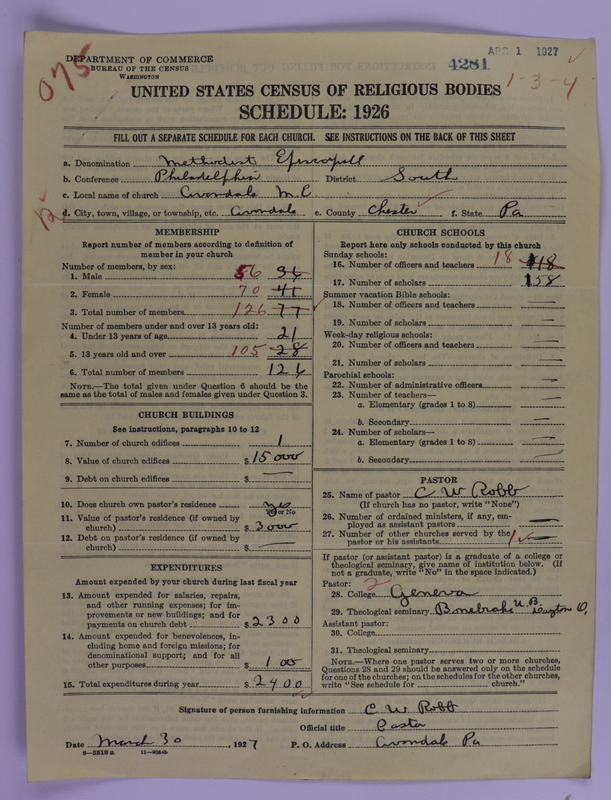 DEPARTMENT OF COMMERCE
BUREAU OF THE CENSUS
WASHINGTON
075
4281
APR 1 1927
1-3-4
UNITED STATES CENSUS OF RELIGIOUS BODIES
SCHEDULE: 1926
FILL OUT A SEPARATE SCHEDULE FOR EACH CHURCH. SEE INSTRUCTIONS ON THE BACK OF THIS SHEET
a. Denomination Methodist Episcopall
b. Conference Philadelphia District South
c. Local name of church Avondale M.E
d. City, town, village, or township, etc. Avondale e. County Chester f. State Pa
MEMBERSHIP
Report number of members according to definition of
member in your church
Number of members, by sex:
1. Male 56 36
2. Female 70 41
3. Total number of members 126 77
Number of members under and over 13 years old:
4. Under 13 years of age 21
5. 13 years old and over 105 28
6. Total number of members 126
NOTE.—The total given under Question 6 should be the
same as the total of males and females given under Question 3.
CHURCH BUILDINGS
See instructions, paragraphs 10 to 12
7. Number of church edifices 1
8. Value of church edifices $ 15000
9. Debt on church edifices $ —
10. Does church own pastor's residence yes
Yes or No
11. Value of pastor's residence (if owned by
church) $ 3000
12. Debt on pastor's residence (if owned by
church) $ —
EXPENDITURES
Amount expended by your church during last fiscal year
13. Amount expended for salaries, repairs,
and other running expenses; for im-
provements or new buildings; and for
payments on church debt $ 2300
14. Amount expended for benevolences, in-
cluding home and foreign missions; for
denominational support; and for all
other purposes $ 100
15. Total expenditures during year $ 2400
CHURCH SCHOOLS
Report here only schools conducted by this church
Sunday schools:
16. Number of officers and teachers 18 118
17. Number of scholars 158
Summer vacation Bible schools:
18. Number of officers and teachers —
19. Number of scholars —
Week-day religious schools:
20. Number of officers and teachers —
21. Number of scholars —
Parochial schools:
22. Number of administrative officers —
23. Number of teachers—
a. Elementary (grades 1 to 8) —
b. Secondary —
24. Number of scholars—
a. Elementary (grades 1 to 8) —
b. Secondary —
PASTOR
25. Name of pastor C W Robb
(If church has no pastor, write "None")
26. Number of ordained ministers, if any, em-
ployed as assistant pastors —
27. Number of other churches served by the
pastor or his assistants 1 —
If pastor (or assistant pastor) is a graduate of a college or
theological seminary, give name of institution below. (If
not a graduate, write "No" in the space indicated.)
Pastor: 2
28. College Geneva
29. Theological seminary Bonebrake U.B. Dayton O.
Assistant pastor:
30. College
31. Theological seminary
NOTE.—Where one pastor serves two or more churches,
Questions 28 and 29 should be answered only on the schedule
for one of the churches; on the schedules for the other churches,
write "See schedule for church."
Signature of person furnishing information C W Robb
Official title Pastor
Date March 30, 1927 P. O. Address Avondale Pa